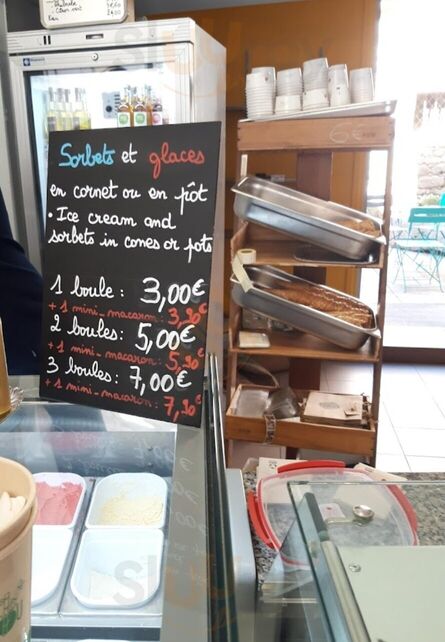 Sorbets et glaces
en cornet ou en pôt
• Ice cream and
sorbets in cones or pots
1 boule : 3,00€
+ 1 mini_macaron : 3,20€
2 boules : 5,00€
+ 1 mini_macaron : 5,20€
3 boules : 7,00€
+ 1 mini_macaron : 7,20€